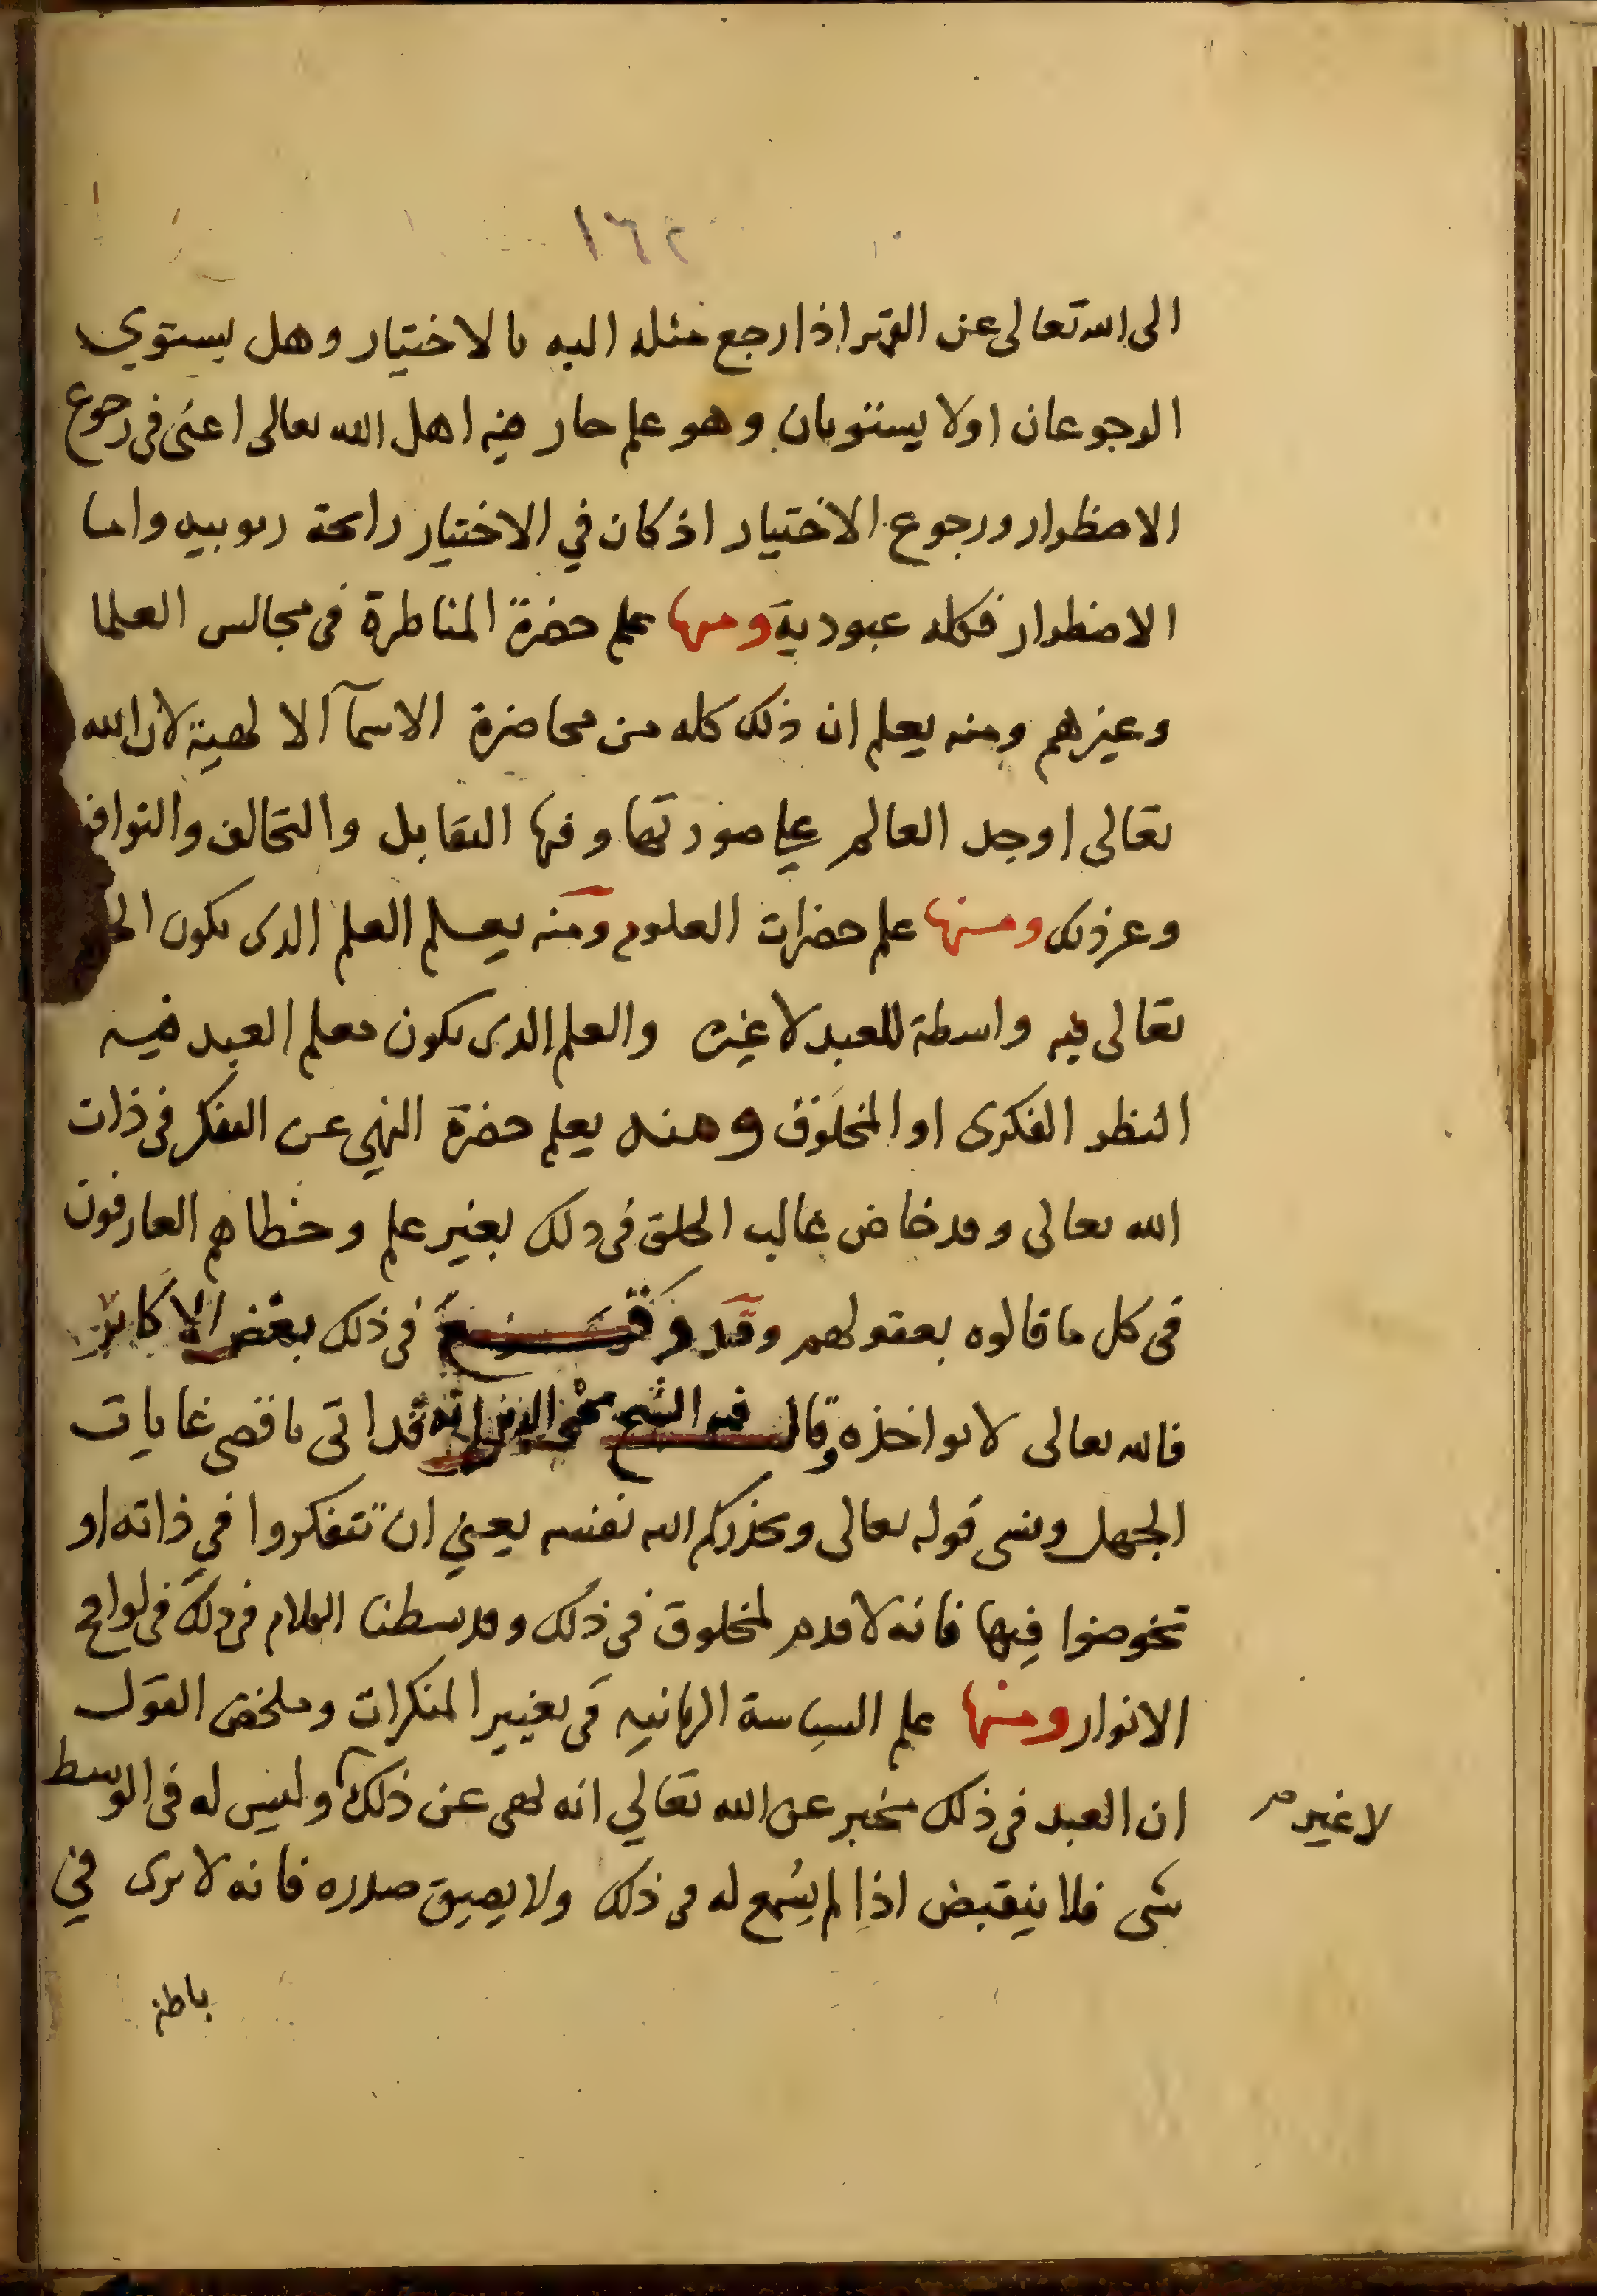 ١٦٢
الى الله تعالى عن القهر اذا رجع مثله اليه بالاختيار وهل يستوي
الرجوعان اولا يستويان وهو علم حار فيه اهل الله تعالى اعنى فى رجوع
الاضطرار ورجوع الاختيار اذ كان في الاختيار رائحة ربوبيه واما
الاضطرار فكله عبودية ومنها علم حضرة المناظرة فى مجالس العلما
وغيرهم ومنه يعلم ان ذلك كله من محاضرة الاسمآ الالهية لان الله
تعالى اوجد العالم على صورتها وفيها التقابل والتخالف والتوافق
وغير ذلك ومنها علم حضرات العلوم ومنه يعلم العلم الذى يكون الحق
تعالى فيه واسطة للعبد لا غيره والعلم الذى يكون معلم العبد فيه
النظر الفكرى او المخلوق ومنه يعلم حضرة النهي عن التفكر فى ذات
الله تعالى وقد خاض غالب الخلق فى ذلك بغير علم وخطاهم العارفون
فى كل ما قالوه بعقولهم وقد وقع فى ذلك بعض الاكابر
فالله تعالى لا يواخذه وقال فيه الشيخ محي الدين انه قد اتى باقصى غايات
الجهل ونسى قوله تعالى ويحذركم الله نفسه يعني ان تتفكروا في ذاته او
تخوضوا فيها فانه لا قدم لمخلوق فى ذلك وقد بسطنا الكلام فى ذلك فى لواقح
الانوار ومنها علم السياسة الربانيه فى تغيير المنكرات وملخص القول
ان العبد فى ذلك مخبر عن الله تعالي انه نهى عن ذلك وليس له فى الوسط
لا غير
شى فلا ينقبض اذا لم يسمع له فى ذلك ولا يضيق صدره فانه لا يرى في
باطنه